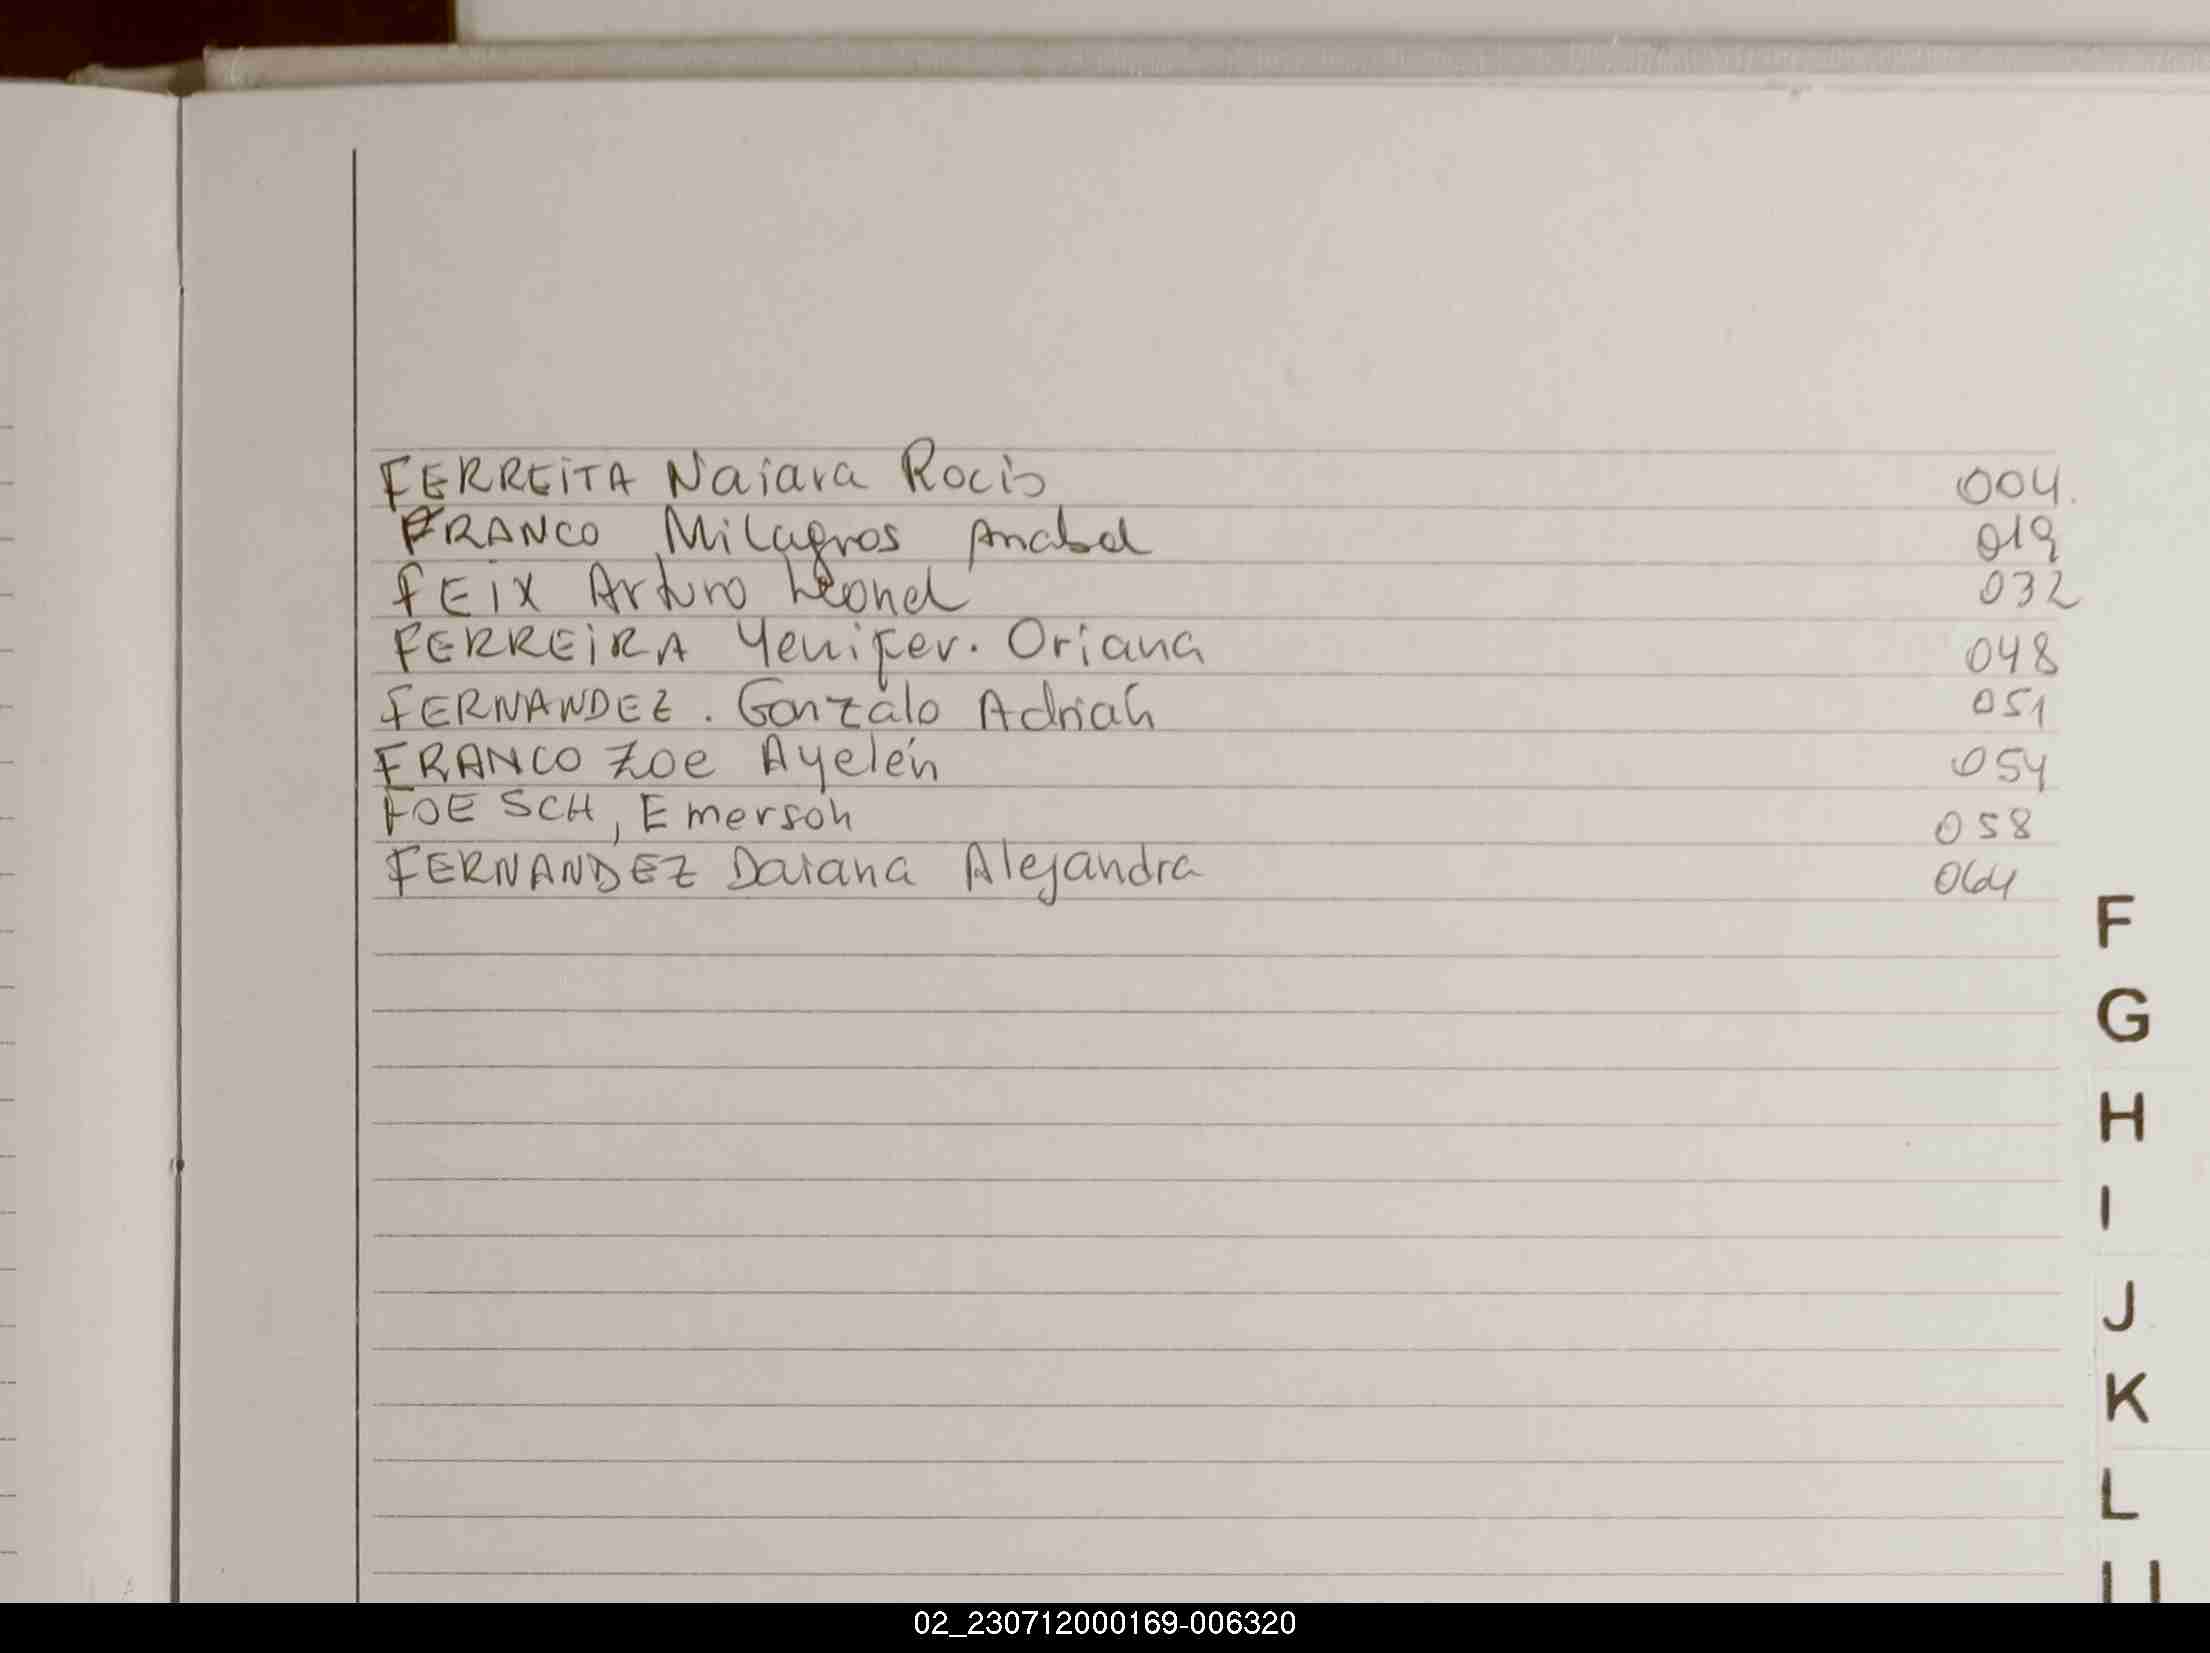 FERREITA Naiara Rocio 004.
FRANCO Milagros Anabel 019
FEIX Arturo Leonel 032
FERREIRA Yenifer. Oriana 048
FERNANDEZ. Gonzalo Adrian 051
FRANCO Zoe Ayelén 054
FOESCH, Emerson 058
FERNANDEZ Daiana Alejandra 064
F
G
H
I
J
K
L
02_230712000169-006320